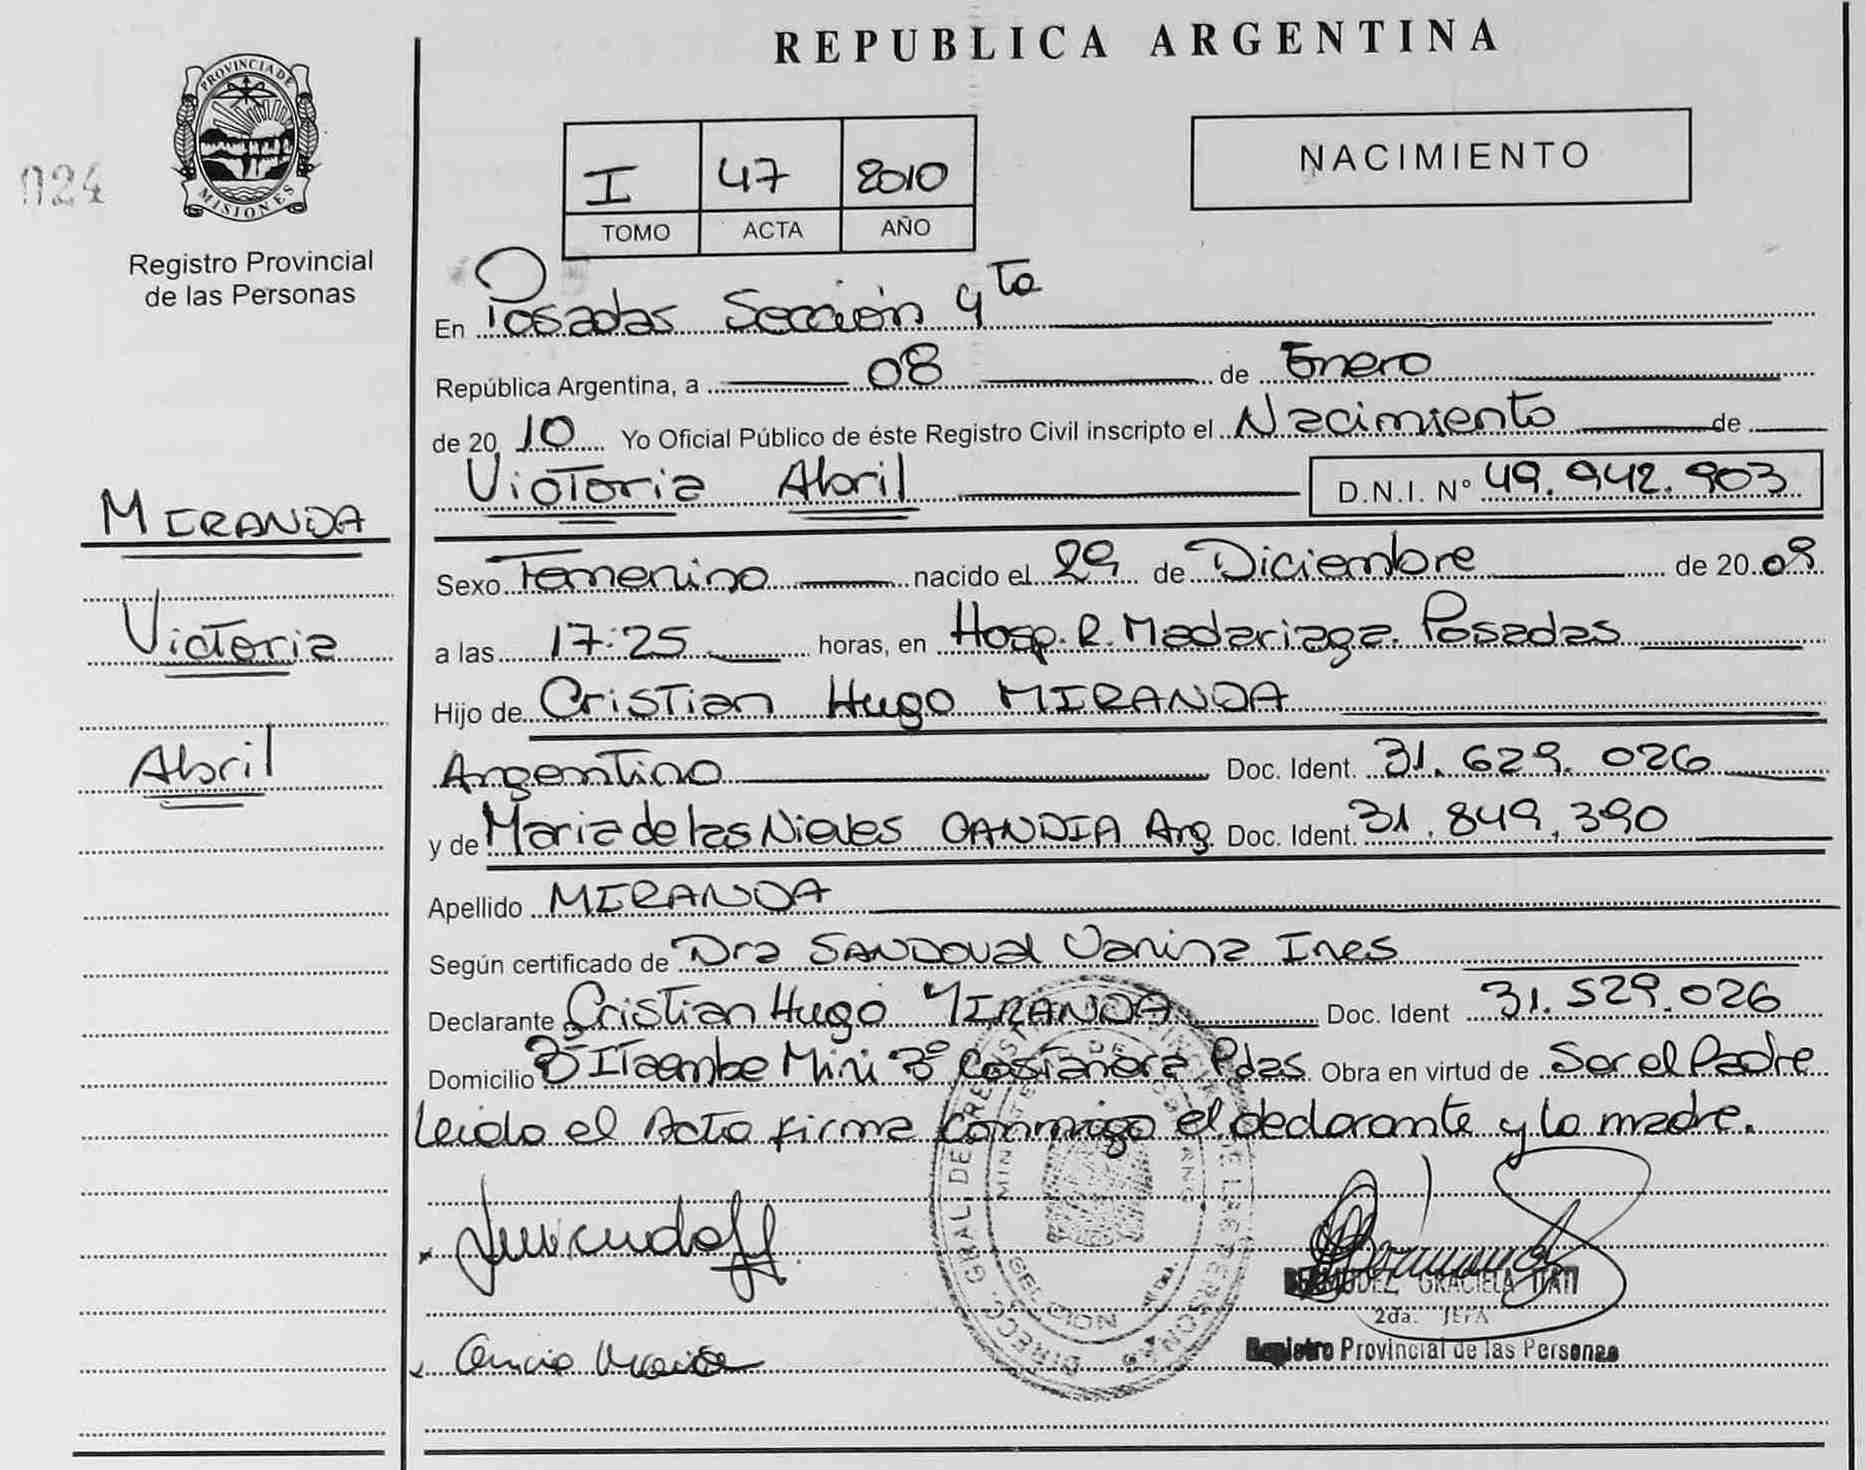 REPUBLICA ARGENTINA
PROVINCIA DE
MISIONES
024
Registro Provincial
de las Personas
I 47 2010
TOMO ACTA AÑO
NACIMIENTO
En Posadas Sección 4ta
República Argentina, a 08 de Enero
de 20 10 Yo Oficial Público de éste Registro Civil inscripto el Nacimiento de
Victoria Abril D.N.I. N° 49.942.903
MIRANDA
Victoria
Abril
Sexo Femenino nacido el 29 de Diciembre de 20 09
a las 17:25 horas, en Hosp. R. Madariaga. Posadas
Hijo de Cristian Hugo MIRANDA
Argentino Doc. Ident. 31.629.026
y de Maria de las Nieves CANDIA Arg. Doc. Ident. 31.849.390
Apellido MIRANDA
Según certificado de Dra SANDOVAL Vanina Ines
Declarante Cristian Hugo MIRANDA Doc. Ident 31.529.026
Domicilio Bº Itaembe Mini Bº Costanera Pdas. Obra en virtud de Ser el Padre
Leido el Acta firma conmigo el declarante y la madre.
BERMUDEZ, GRACIELA ITATI
2da. JEFA
Registro Provincial de las Personas